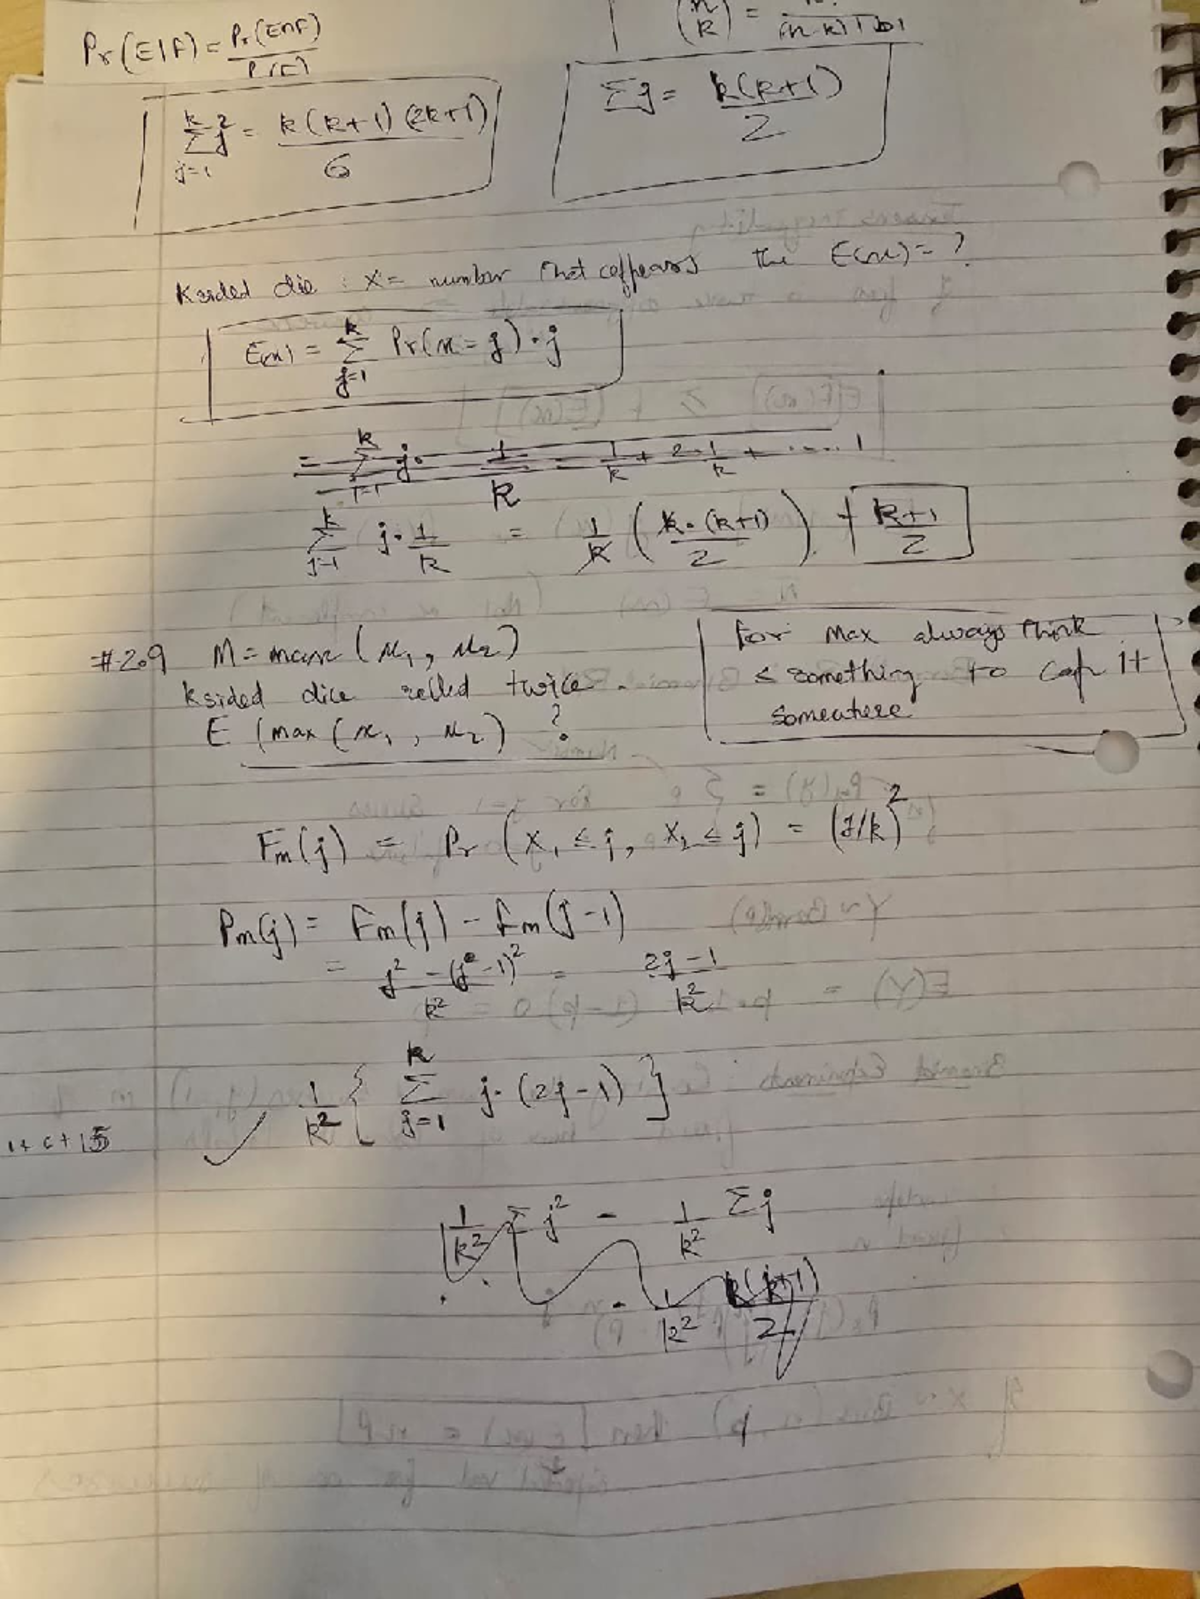 Pr(E|F) = Pr(E∩F) / P(F)
(n k) =
k Σ j=1 j² = k(k+1)(2k+1) / 6
Σj = k(k+1) / 2
K sided die : X = number that appears the E(x) = ?
E(x) = k Σ j=1 Pr(x = j) · j
= k Σ j=1 j · 1/k = 1/k + 2·1/k + ....
k Σ j=1 j · 1/k = 1/k ( k·(k+1) / 2 ) k+1 / 2
#2.9 M = max (x₁, x₂)
k sided dice rolled twice.
E (max (x₁, x₂) ?
For Max always think
≤ something to cap it
somewhere
Fm(j) = Pr (X₁ ≤ j, X₂ ≤ j) = (j/k)²
Pm(j) = Fm(j) - Fm(j-1)
= j² - (j-1)² / k² = 2j-1 / k²
1/k² { k Σ j=1 j·(2j-1) ]
1+6+15
1/k² Σ j² - 1/k² Σ j
- 1/k² k(k+1) / 2